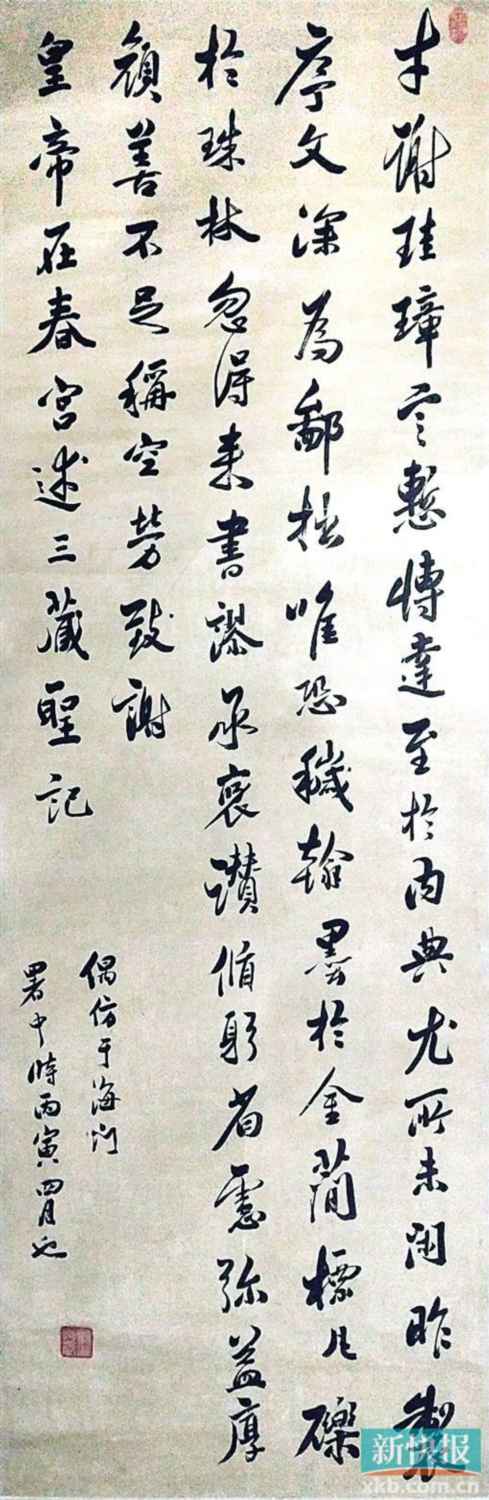 才謝珪璋言慙博達至於内典尤所未閑昨製
序文深為鄙拙唯恐穢翰墨於金簡標瓦礫
於珠林忽得来書謬承褒讃循躬省慮弥益厚
顔善不足稱空勞致謝
皇帝在春宮述三藏聖記
偶仿于海門
署中時丙寅四月也
新快报
xkb.com.cn